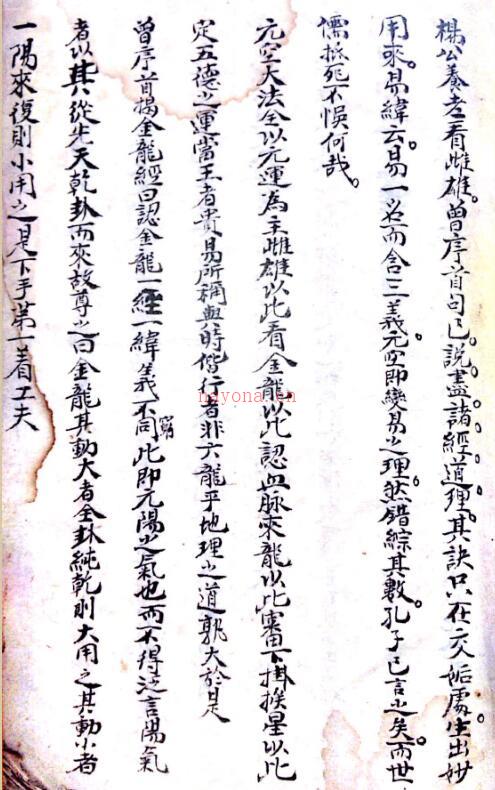 楊公養老看雌雄。曾序首句已說盡諸經道理。其訣只在交姤處。生出妙
用來。易緯云。易一名而含三義。元空即變易之理。然錯綜其數。孔子已言之矣。而世
儒抵死不悞何哉。
元空大法全以元運為主雌雄以此看金龍以此認血脈來龍以此審下掛挨星以此
定五德之運當王者貴易所稱與時偕行者非六龍乎地理之道孰大於是
曾序首揭金龍經曰認金龍一經一緯義不同窮此即元陽之氣也而不得泛言陽氣
者以其從先天乾卦而來故尊之曰金龍其動大者全卦純乾則大用之其動小者
一陽來復則小用之是下手第一着工夫
nayona.cn